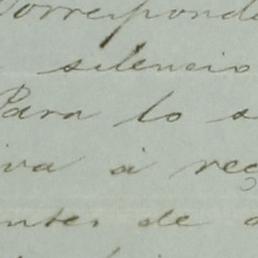 Correspond
silencio
Para lo s
iva á reç
ntes de